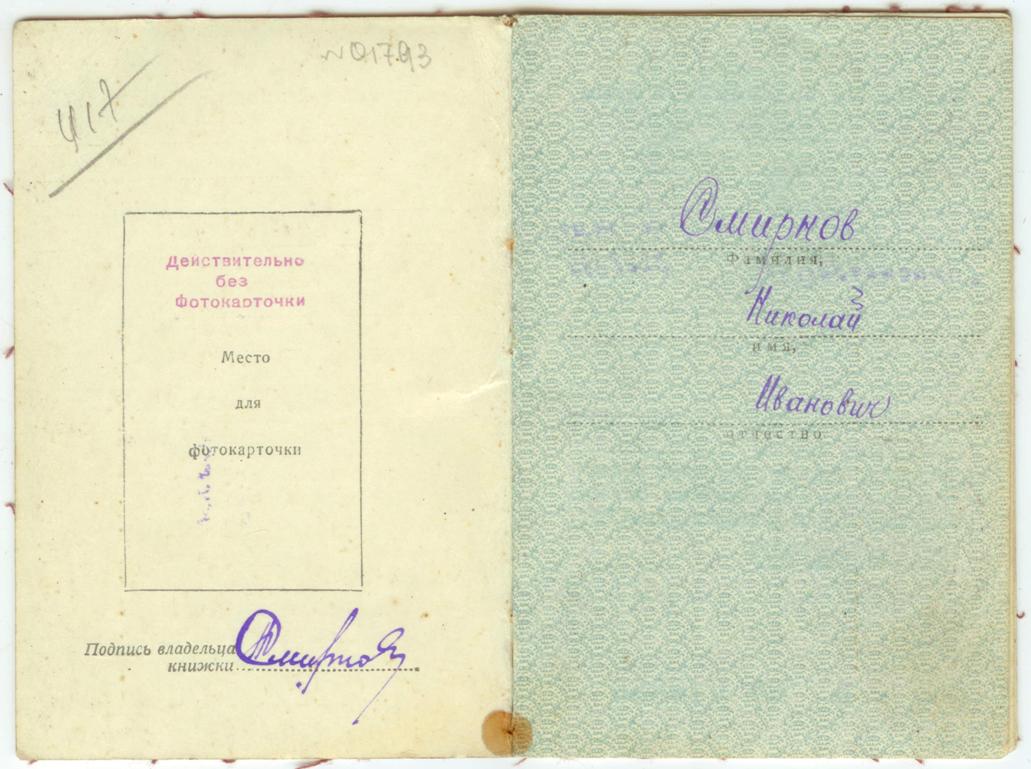 N01793
417
Действительно
без
Фотокарточки
Место
для
фотокарточки
Подпись владельца
книжки
Смирнов
Смирнов
Фамилия,
Николай
имя,
Иванович
отчество